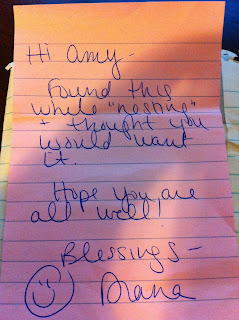 Hi Amy-
Found this
while "nesting"
+ thought you
would want
it.
Hope you are
all well!
Blessings-
Diana